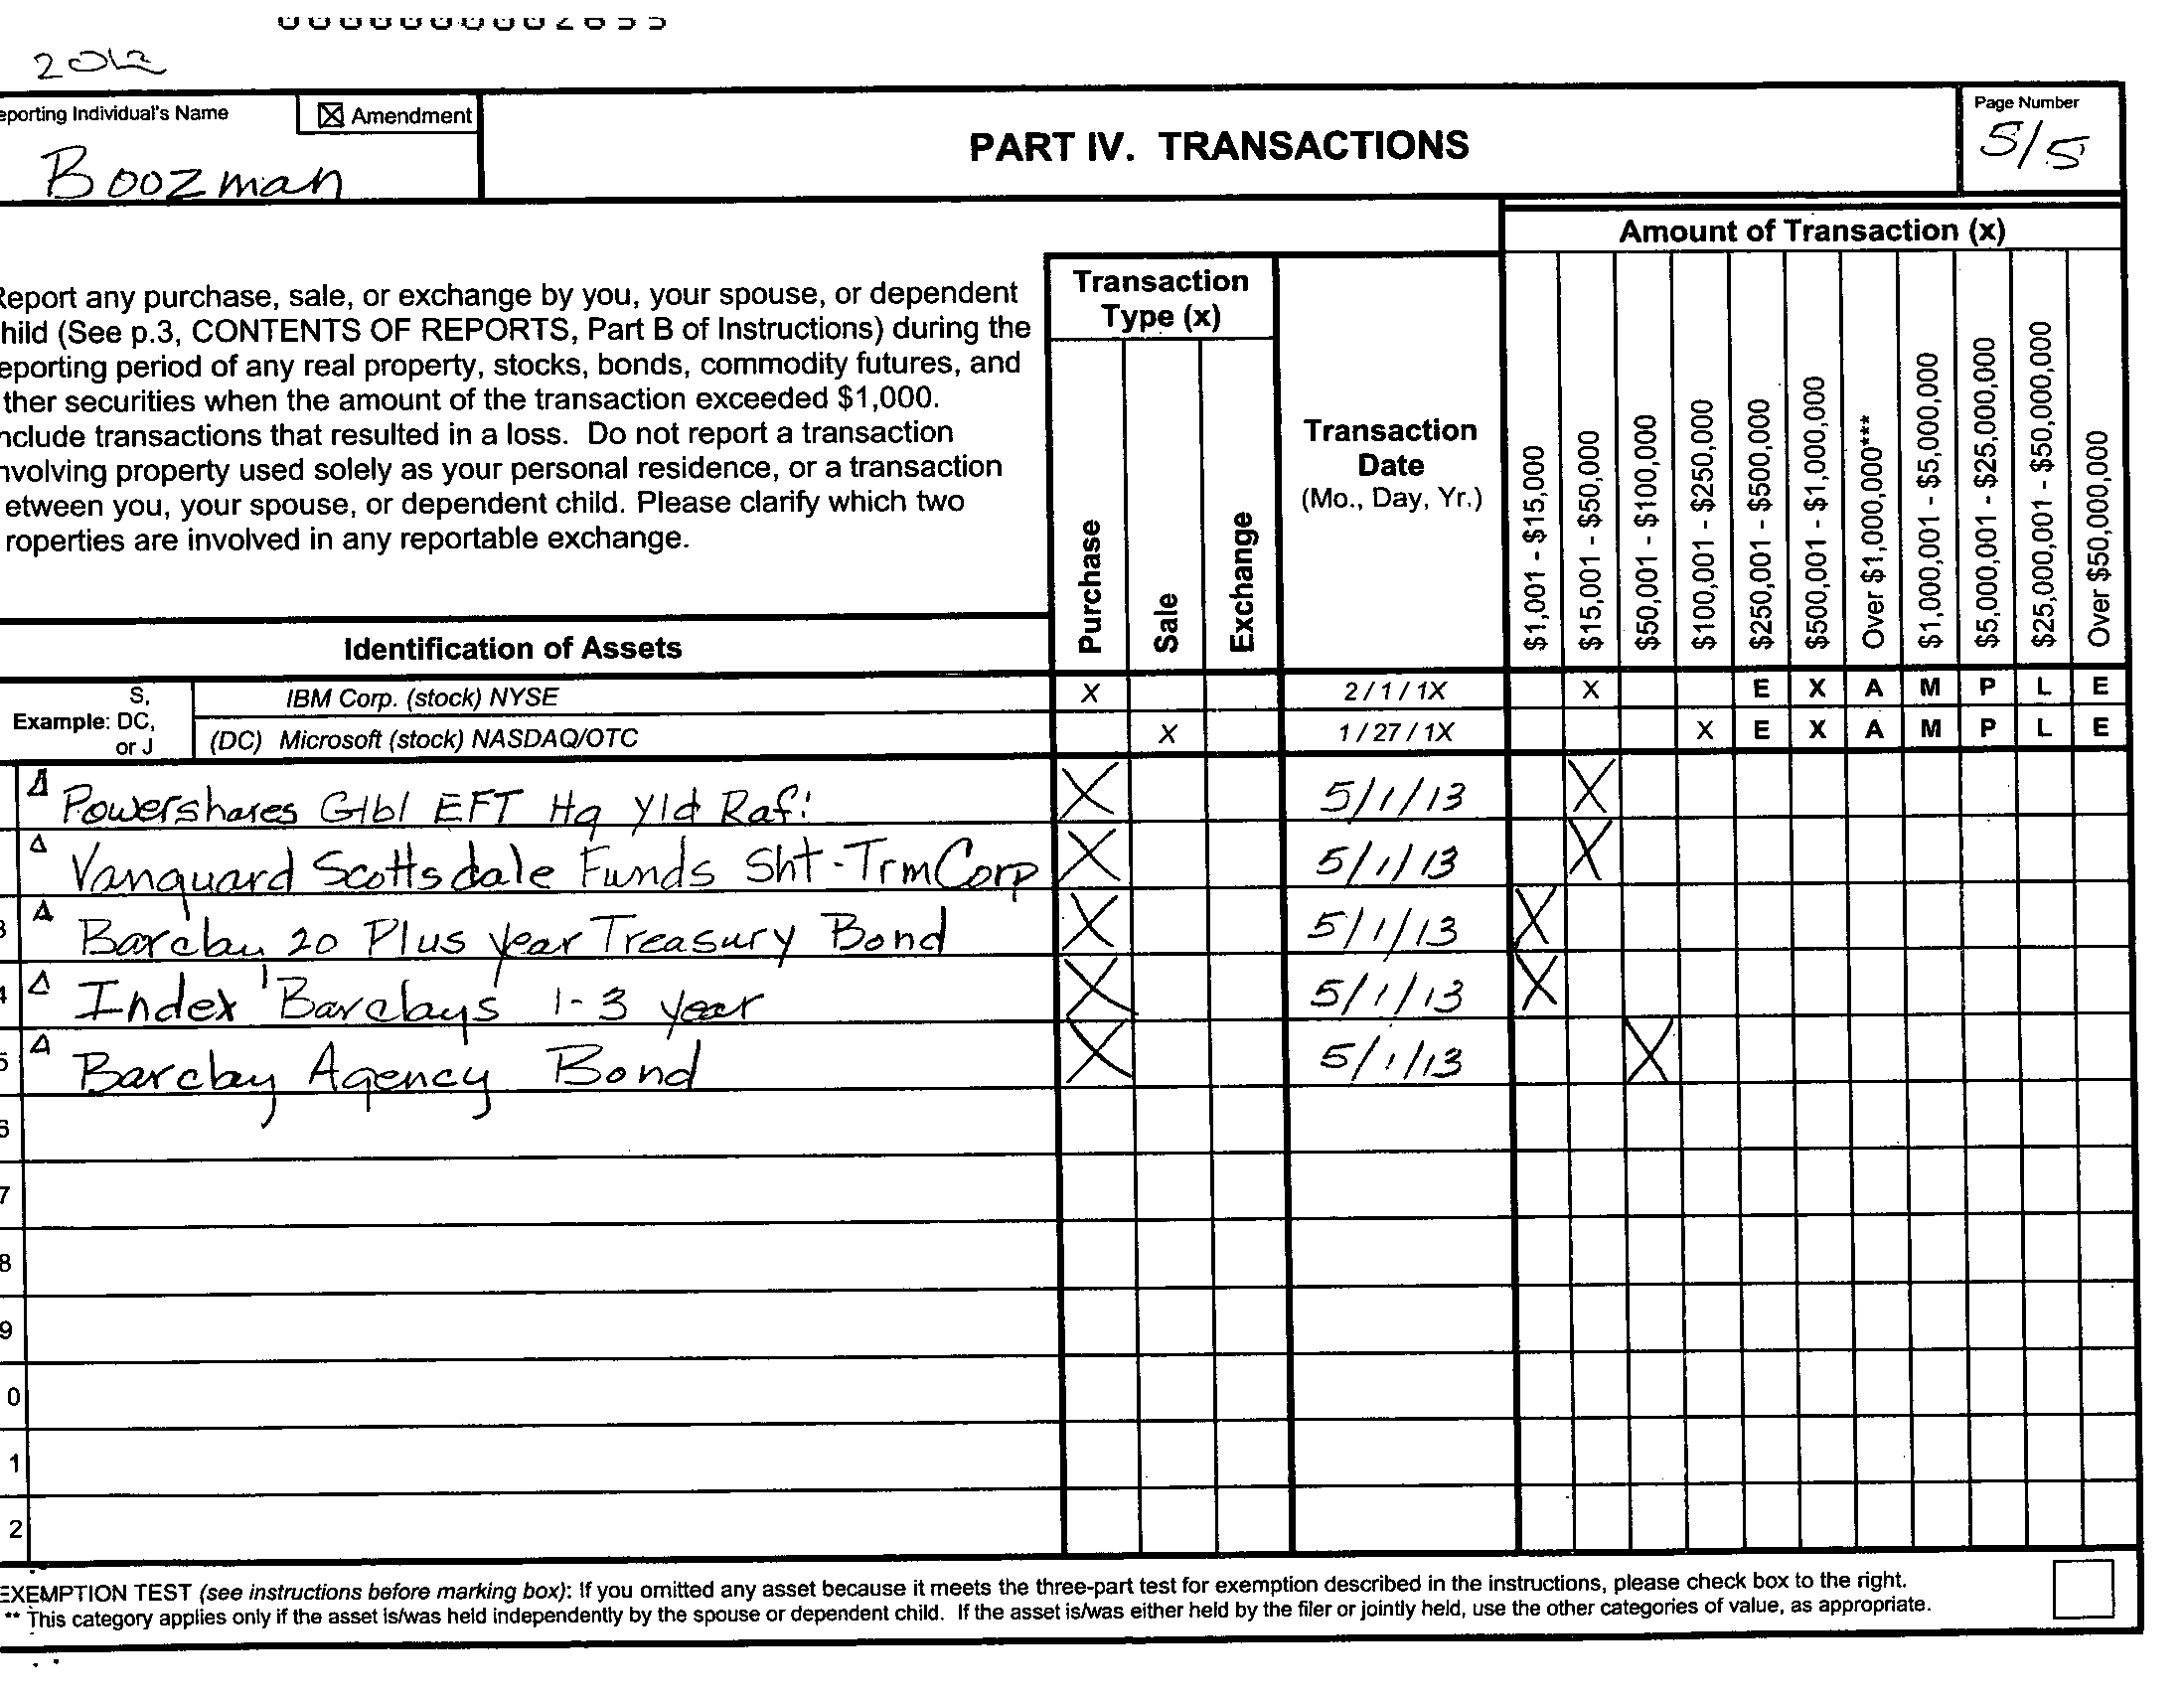 2012
eporting Individual's Name
☒ Amendment
Boozman
PART IV. TRANSACTIONS
Page Number
5/5
Amount of Transaction (x)
Report any purchase, sale, or exchange by you, your spouse, or dependent
hild (See p.3, CONTENTS OF REPORTS, Part B of Instructions) during the
eporting period of any real property, stocks, bonds, commodity futures, and
ther securities when the amount of the transaction exceeded $1,000.
nclude transactions that resulted in a loss. Do not report a transaction
nvolving property used solely as your personal residence, or a transaction
etween you, your spouse, or dependent child. Please clarify which two
roperties are involved in any reportable exchange.
Transaction
Type (x)
Purchase
Sale
Exchange
Transaction
Date
(Mo., Day, Yr.)
$1,001 - $15,000
$15,001 - $50,000
$50,001 - $100,000
$100,001 - $250,000
$250,001 - $500,000
$500,001 - $1,000,000
Over $1,000,000***
$1,000,001 - $5,000,000
$5,000,001 - $25,000,000
$25,000,001 - $50,000,000
Over $50,000,000
Identification of Assets
Example: S, DC, or J
IBM Corp. (stock) NYSE X 2 / 1 / 1X X E X A M P L E
(DC) Microsoft (stock) NASDAQ/OTC X 1 / 27 / 1X X E X A M P L E
Δ Powershares Glbl EFT Hq Yld Rafi X 5/1/13 X
Δ Vanguard Scottsdale Funds Sht-Trm Corp X 5/1/13 X
3 Δ Barclay 20 Plus year Treasury Bond X 5/1/13 X
4 Δ Index Barclays 1-3 year X 5/1/13 X
5 Δ Barclay Agency Bond X 5/1/13 X
6
7
8
9
0
1
2
EXEMPTION TEST (see instructions before marking box): If you omitted any asset because it meets the three-part test for exemption described in the instructions, please check box to the right.
** This category applies only if the asset is/was held independently by the spouse or dependent child. If the asset is/was either held by the filer or jointly held, use the other categories of value, as appropriate.